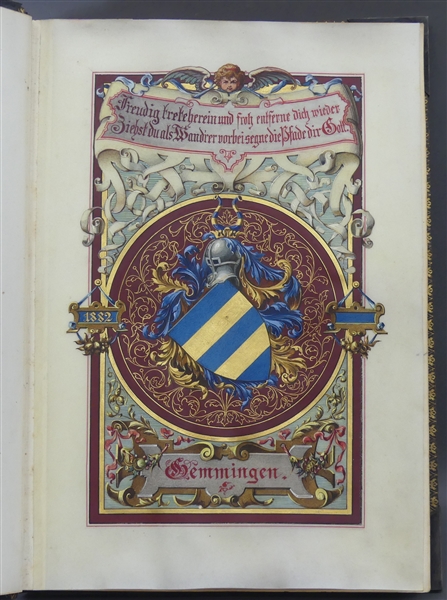 Freudig trete herein und froh entferne dich wieder
Ziehst du als Wandrer vorbei segne die Pfade dir Gott.
1882
Gemmingen.